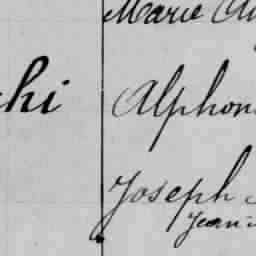 Marie Au
chi Alphon
Joseph
Jean